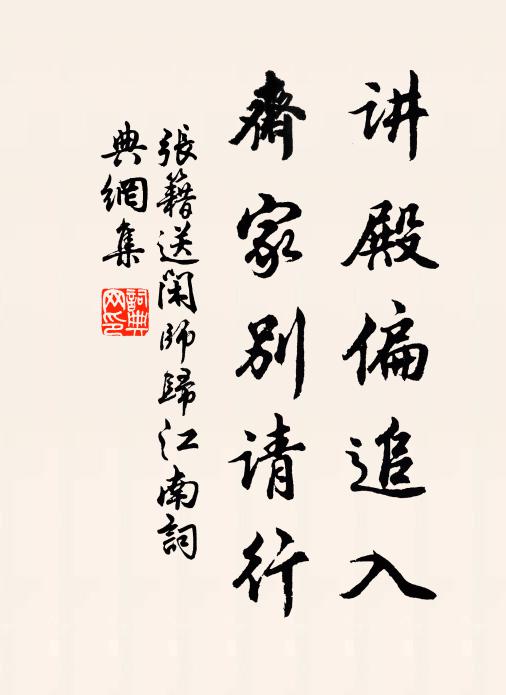 讲殿偏追入
齋家别请行
張籍送閑師歸江南詞
典網集
詞典
网印